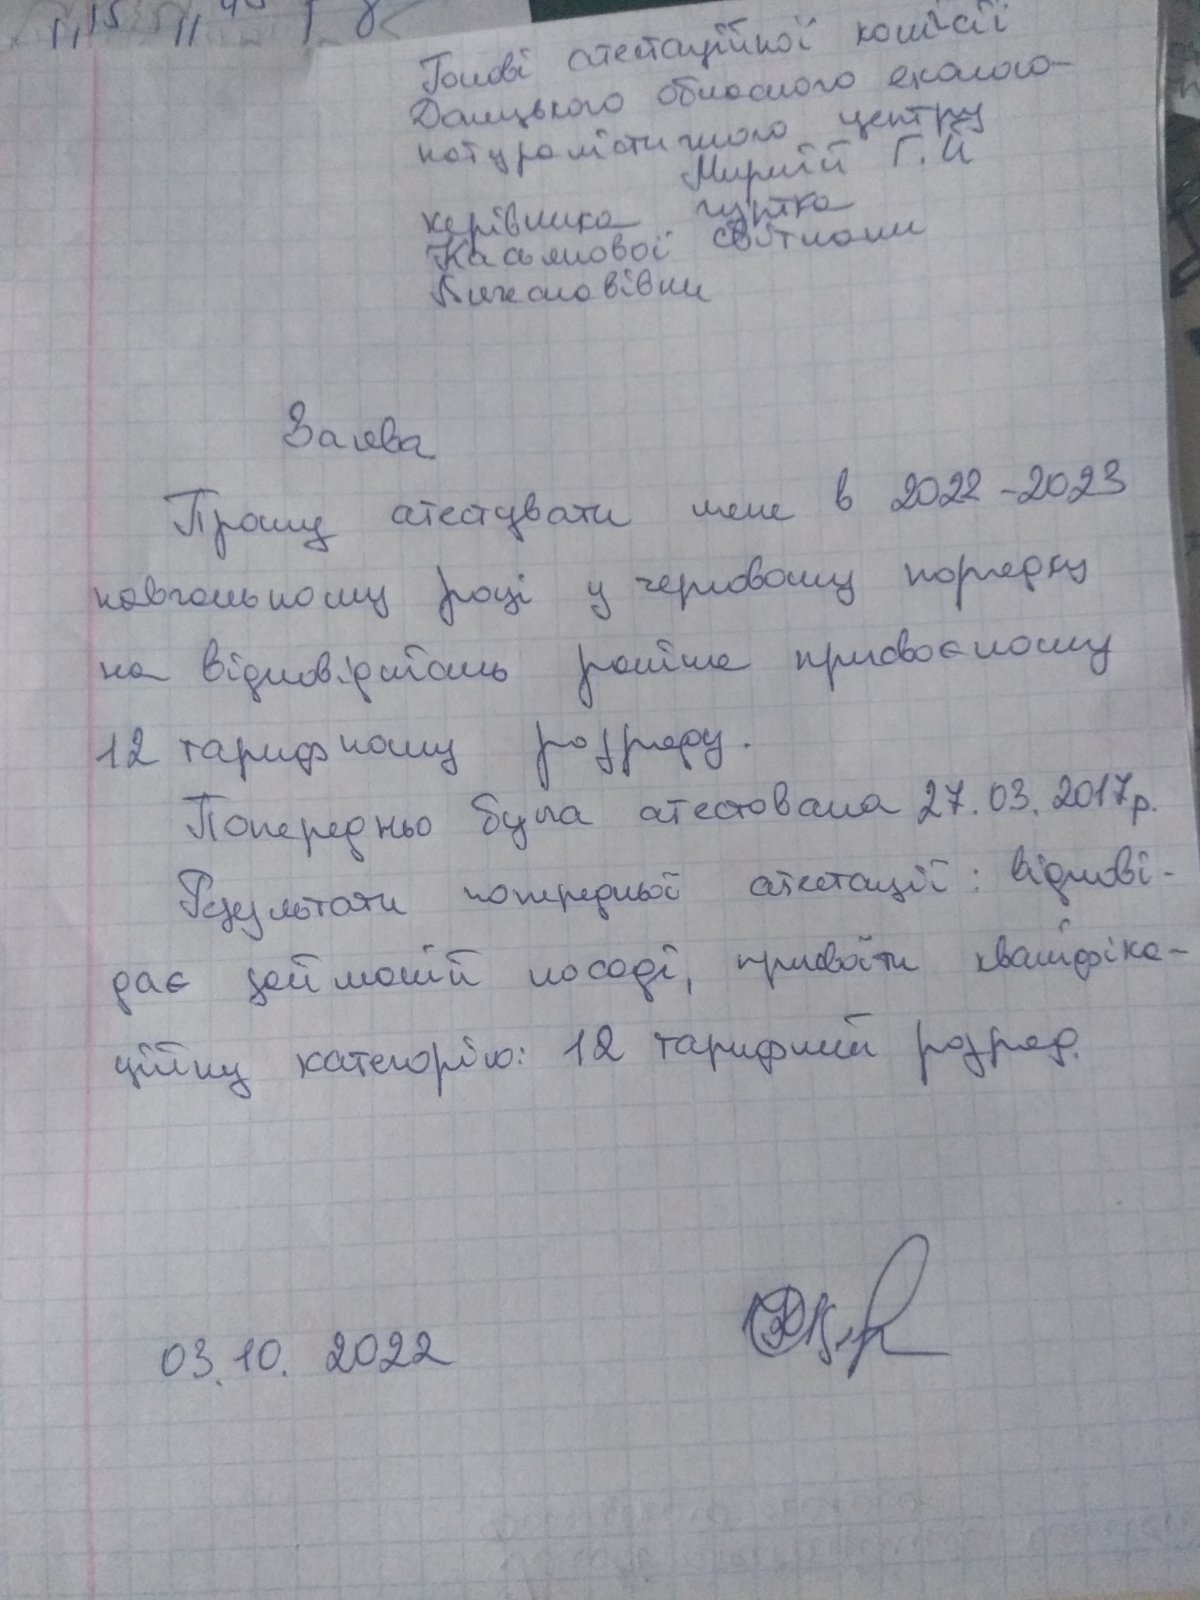 Голові атестаційної комісії
Донецького обласного еколого-
натуралістичного центру
Мирній Г.Й
керівника гуртка
Касьянової Світлани
Вячеславівни
Заява
Прошу атестувати мене в 2022-2023
навчальному році у черговому порядку
на відповідність раніше присвоєному
12 тарифному розряду.
Попередньо була атестована 27.03.2017р.
Результати попередньої атестації: відпові-
дає займаній посаді, присвоїти кваліфіка-
ційну категорію: 12 тарифний розряд.
03.10.2022